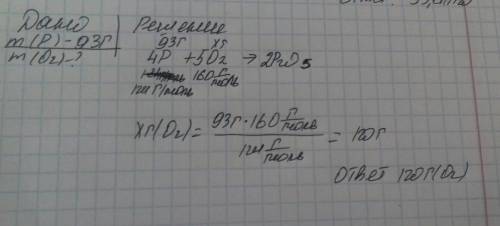 Дано
m(P) - 93г
m(O₂)-?
Решение
93г хг
4P + 5O₂ → 2P₂O₅
160 г/моль
124 г/моль
хг(O₂) = 93г · 160 г/моль / 124 г/моль = 120г
Ответ 120г(O₂)